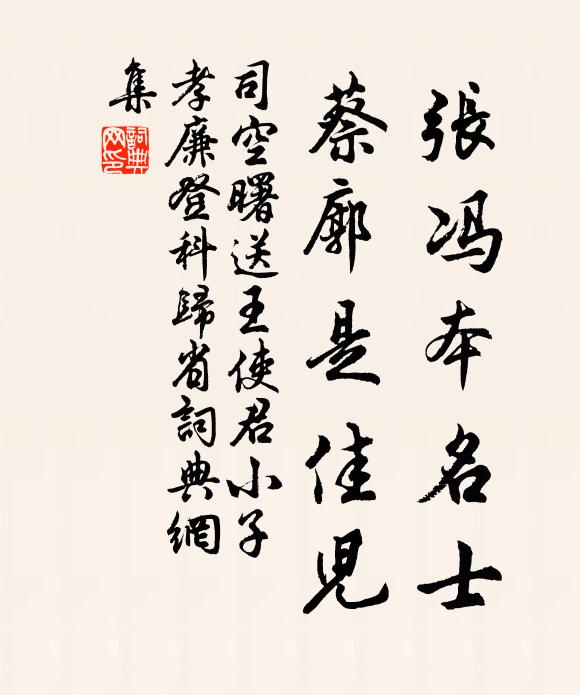 張冯本名士
蔡廓是佳児
司空曙送王使君小子
孝廉登科歸省詞典網
集
詞典
网印